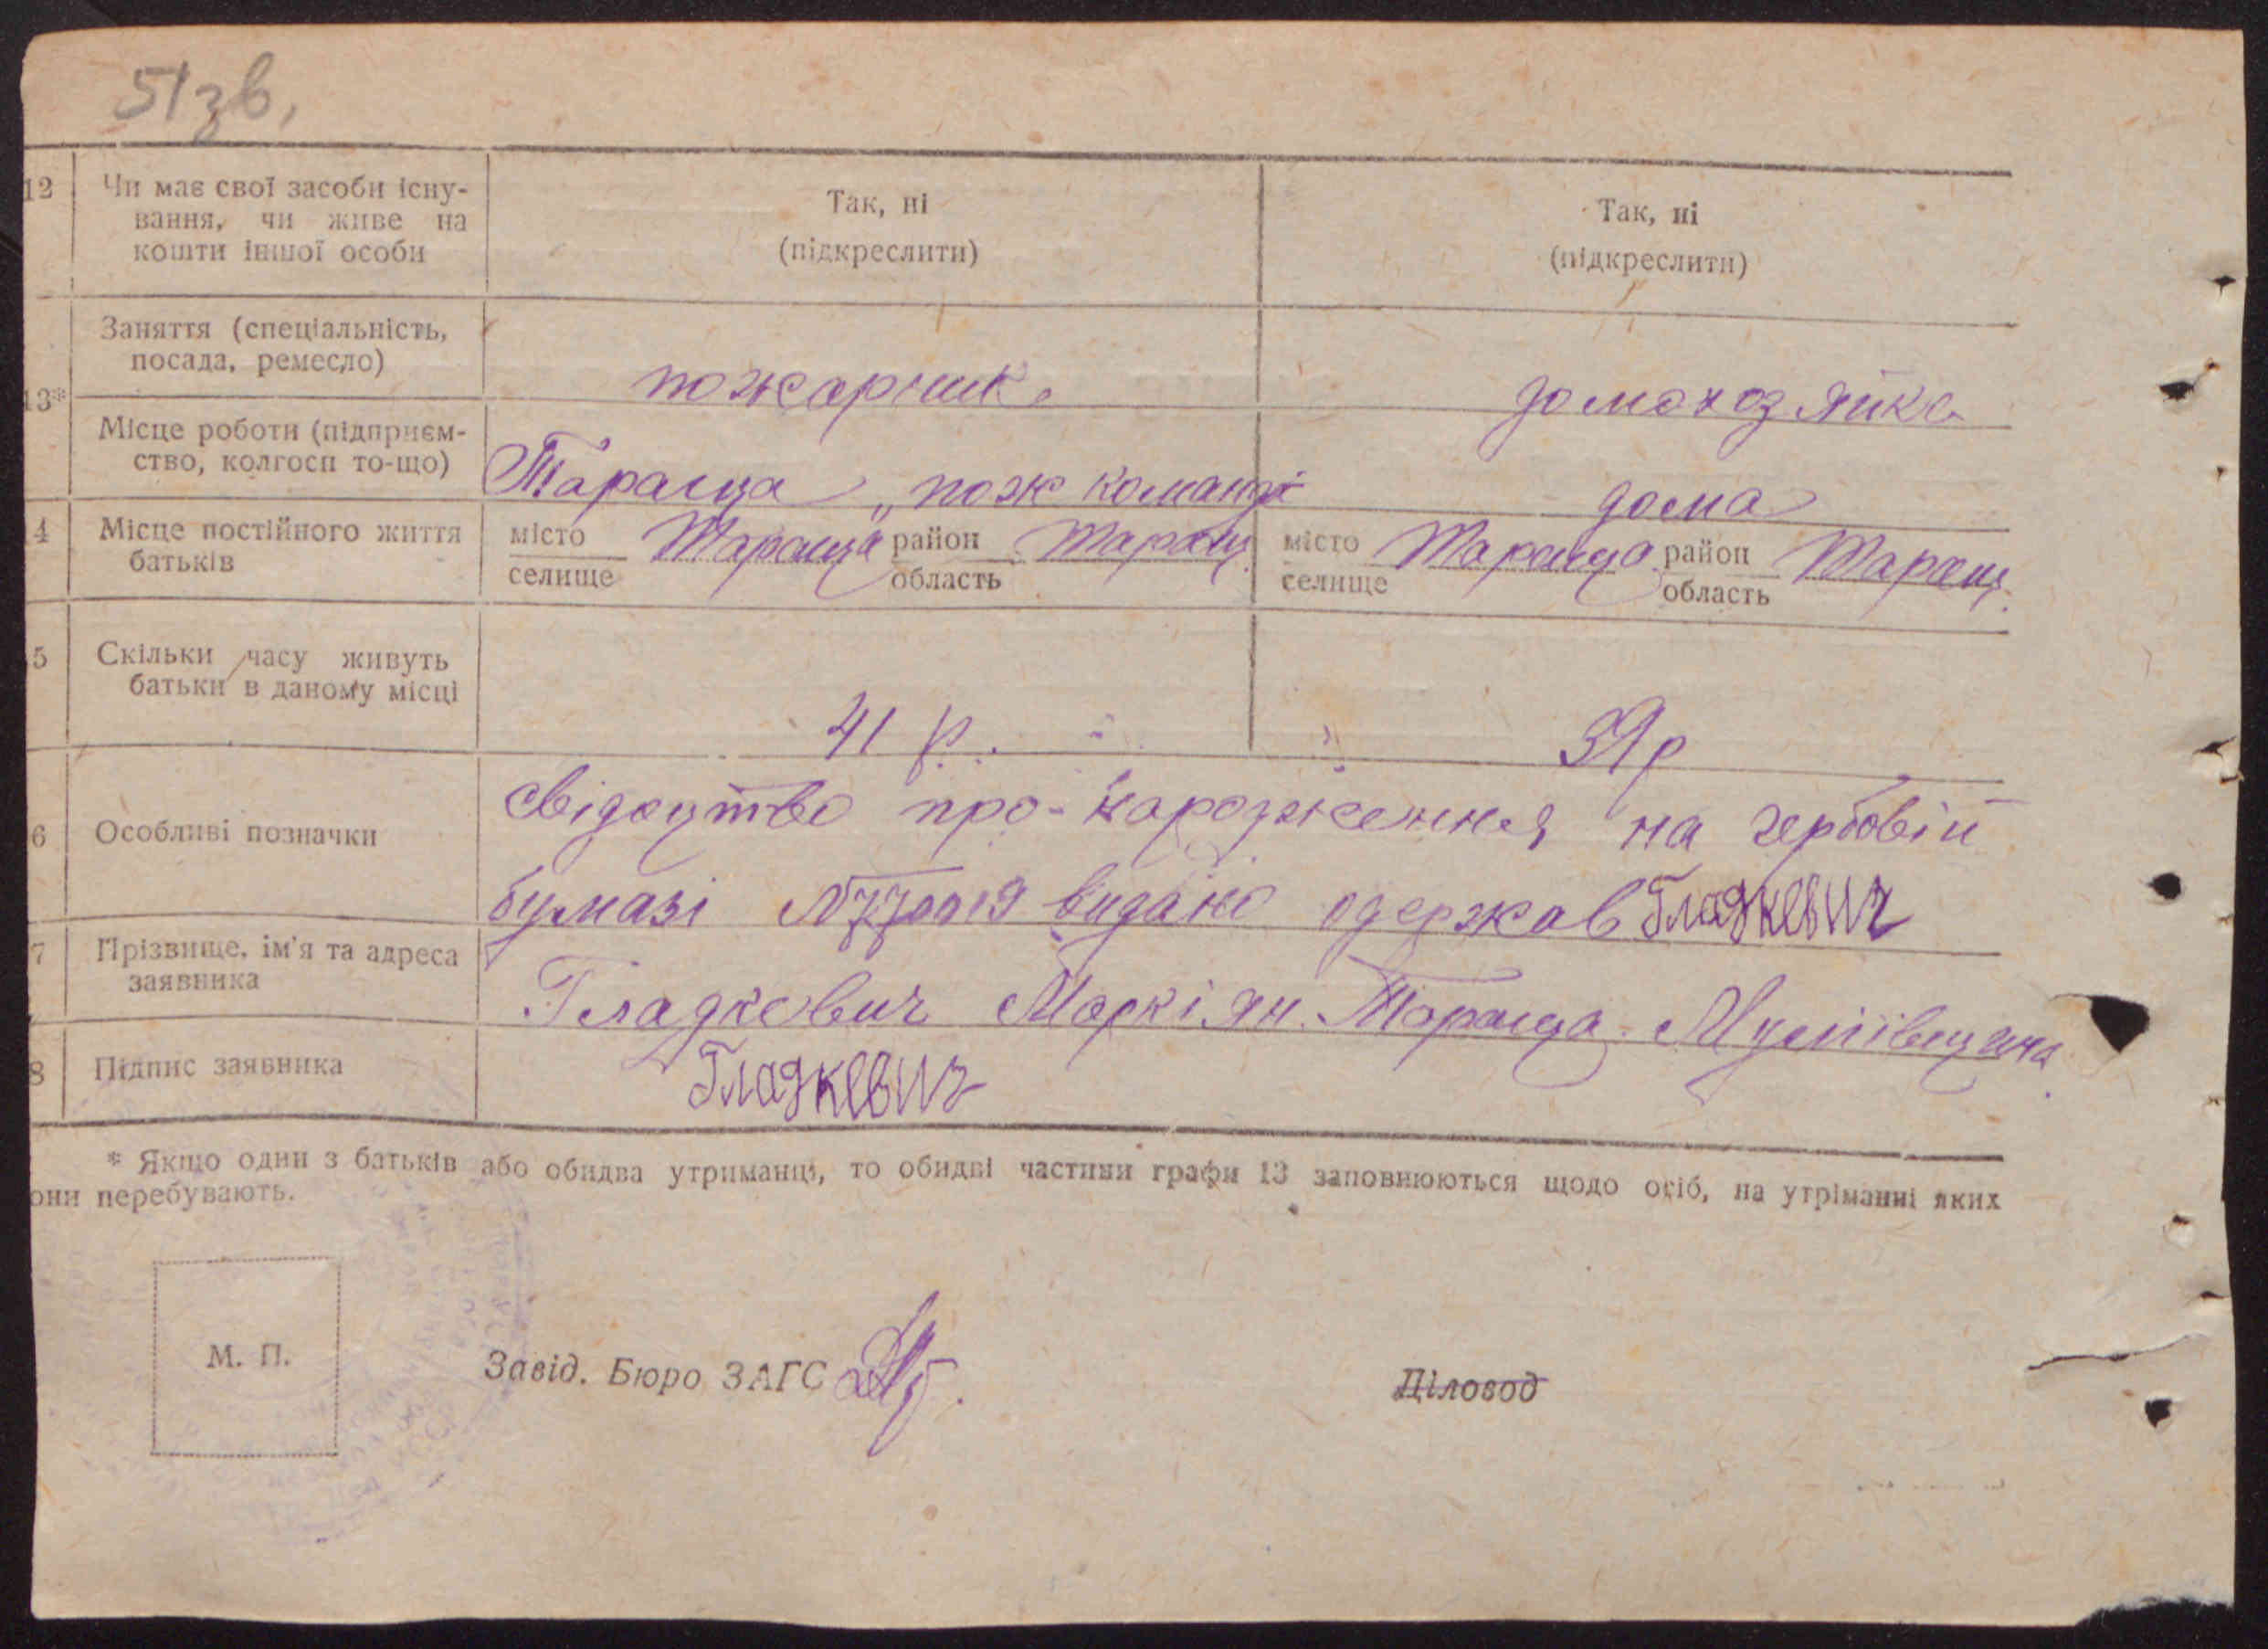 51зв.
12 Чи має свої засоби існу-
вання, чи живе на
кошти іншої особи
Так, ні
(підкреслити)
Так, ні
(підкреслити)
13*
Заняття (спеціальність,
посада, ремесло)
пожарник.
домохозяйка
Місце роботи (підприєм-
ство, колгосп то-що)
Тараща, пож команді
дома
4 Місце постійного життя
батьків
місто Тараща район Таращ.
селище область
місто Тараща район Таращ.
селище область
5 Скільки часу живуть
батьки в даному місці
41 р.
39 р
6 Особливі позначки
свідоцтво про народження на гербовій
бумазі видано одержав Гладкевич
7 Прізвище, ім'я та адреса
заявника
Гладкевич Маркіян Тараща
8 Підпис заявника
Гладкевич
* Якщо один з батьків або обидва утриманці, то обидві частини графи 13 заповнюються щодо осіб, на утріманні яких
они перебувають.
М. П.
Завід. Бюро ЗАГС
Діловод